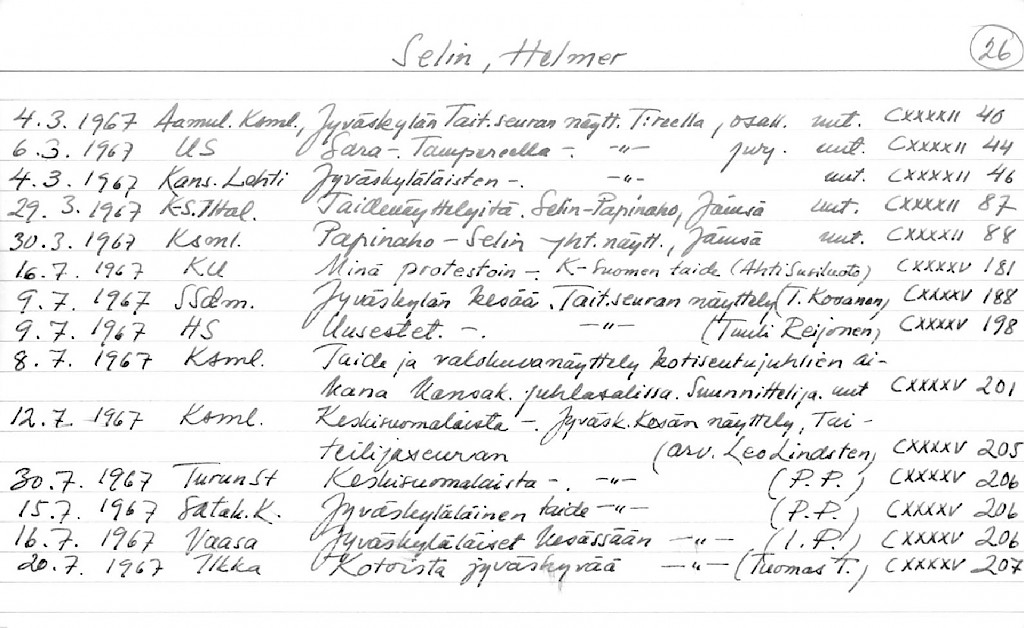 Selin, Helmer
26
4.3. 1967 Aamul. Ksml., Jyväskylän Tait.seuran näytt. T:reella, osall. mt. CXXXXII 40
6.3. 1967 US Sara-. Tampereella -. -"- jurj. mt. CXXXXII 44
4.3. 1967 Kans. Lehti Jyväskyläläisten -. -"- mt. CXXXXII 46
29.3. 1967 K-S. Ital. Taidenäyttelyitä. Selin-Papinaho, Jämsä mt. CXXXXII 87
30.3. 1967 Ksml. Papinaho - Selin yht. näytt., Jämsä mt. CXXXXII 88
16.7. 1967 KU Minä protestoin -. K-Suomen taide (Ahti Susiluoto) CXXXXV 181
9.7. 1967 SSdm. Jyväskylän kesää. Tait.seuran näyttely (T. Kovanen, CXXXXV 188
9.7. 1967 HS -. -"- (Tuuli Reijonen, CXXXXV 198
8.7. 1967 Ksml. Taide ja valokuvanäyttely kotiseutujuhlien ai-
kana kansak. juhlasalissa. Suunnittelija. mt CXXXXV 201
12.7. 1967 Ksml. Keskisuomalaista -. Jyväsk. Kesän näyttely, Tai-
teilijaseuran (arv. Leo Lindsten, CXXXXV 205
30.7. 1967 Turun St Keskisuomalaista -. -"- (P.P.) CXXXXV 206
15.7. 1967 Satak. K. Jyväskyläläinen taide -"- (P.P.) CXXXXV 206
16.7. 1967 Vaasa Jyväskyläläiset kesässään -"- (I.P.) CXXXXV 206
20.7. 1967 Ilkka Kotoista jyväskyvää -"- (Tuomas T., CXXXXV 207